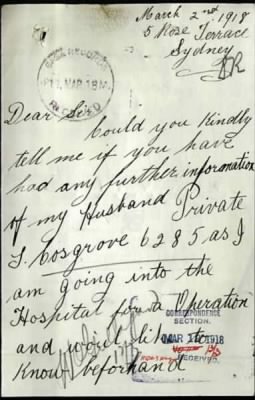 March 2nd 1918
5 Rose Terrace
Sydney
BASE RECORDS
11 MAR 18
Dear Sir
Could you Kindly
tell me if you have
had any further inforanation
of my Husband Private
J. Cosgrove 6285 as I
am going into the
Hospital for a Operation
and would like to
Know beforehand
CORRESPONDENCE
SECTION.
MAR 11 1918
RECEIVED